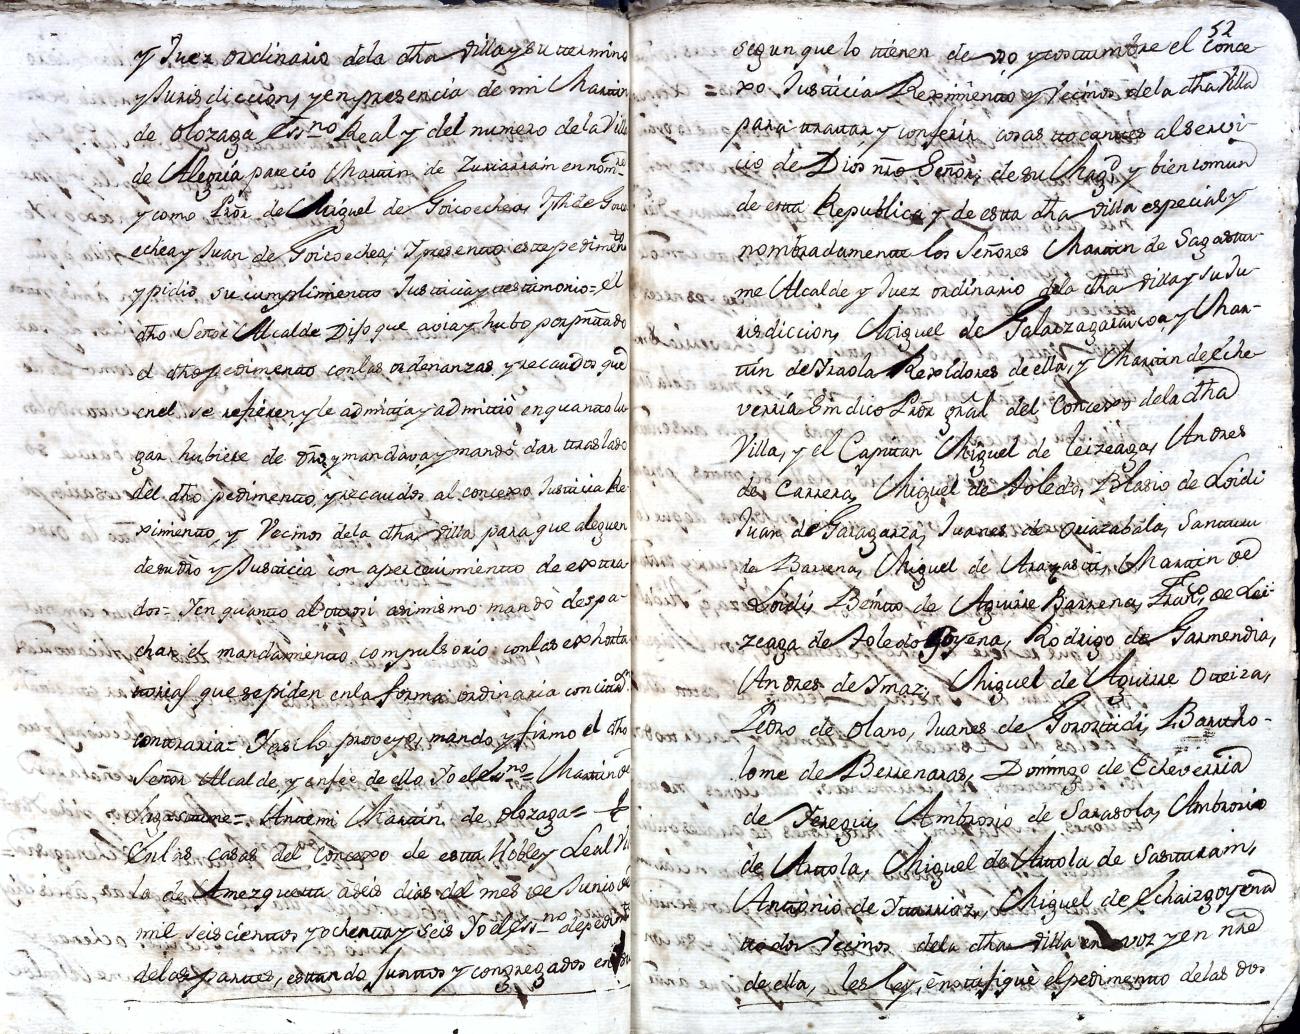 y Juez ordinario dela dha villa y su termino
y Jurisdiccion, y en presencia de mi Martin
de olozaga Essno Real y del numero dela Villa
de Alegria parecio Martin de Zuriarrain en nomre
y como Pror de Miguel de Goicoechea,
echea y Juan de Goicoechea, Y presento este pedimto
y pidio su cumplimiento Justicia y testamonio= el
dho Señor Alcalde Dijo que avia y hubo por pntado
el dho pedimento con las ordenanzas y recaudos que
en el se refieren y le admitia y admitio en quanto lu-
gar hubiere de dro, y mandava y mandò dar traslado
del dho pedimento, y recaudos al concexo Justicia Re-
ximiento, y Vecinos dela dha villa para que aleguen
de su dro y Justicia con apercevimiento de estra-
dos= Y en quanto al otrosi asimismo mandò despa-
char el mandamiento compulsorio con las exhorta
torias que se piden en la forma ordinaria con citaon
contraria= Y asi lo proveyo, mando y firmo el dho
Señor Alcalde, y en fee de ello Yo el Essno= Martin de
Sagastume= Ante mi Martin de olozaga=
En las casas del Concexo de esta Noble y Leal Vi
la de Amezqueta a seis dias del mes de Junio de
mil seiscientos y ochenta y seis Yo el Essno de pedimto
delas partes, estando Juntos y congregados en
52
segun que lo tienen de vso y costumbre el Conce-
xo Justicia Reximiento y Vecinos dela dha Villa
para tratar, y conferir cosas tocantes al servi-
cio de Dios nro Señor, de su Magd y bien comun
de esta Republica y de esta dha villa especial y
nombradamente los Señores Martin de Sagastu-
me Alcalde y Juez ordinario dela dha villa y su Ju-
risdiccion, Miguel de Galarzagaraicoa, y Mar-
tin de Yraola Rexidores de ella, y Martin de Eche-
verria Sindico Pror gral del Concexo dela dha
Villa, y el Capitan Miguel de Leizeaga, Andres
de Carrera, Miguel de Toledo, Blasio de Loidi
Juan de Garagarza, Juanes de Otazabala, Santuru
de Barrena, Miguel de Arayasti, Martin de
Loidi, Benito de Aguirre Barrena, Franco de Lei-
zeaga de Toledo Goyena, Rodrigo de Garmendia,
Andres de Ymaz, Miguel de Aguirre Oteiza,
Pedro de Olano, Juanes de Gorostidi, Bartho-
lome de Berrenaras, Domingo de Echeverria
de Yeregui, Ambrosio de Sarasola, Ambrosio
de Artola, Miguel de Artola de Sasturain,
Antonio de Yturrioz, Miguel de Echaizgoyena
todos Vecinos dela dha villa en voz y en nre
de ella, les ley, e notifiquè el pedimento de las dos